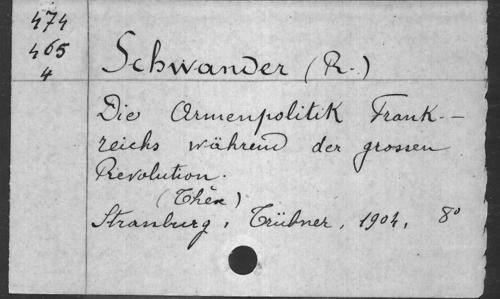 474
465
4
Schwander (R.)
Die Armenpolitik Frank-
reichs während der grossen
Revolution.
(Thèse)
Strassburg, Trübner, 1904, 8°